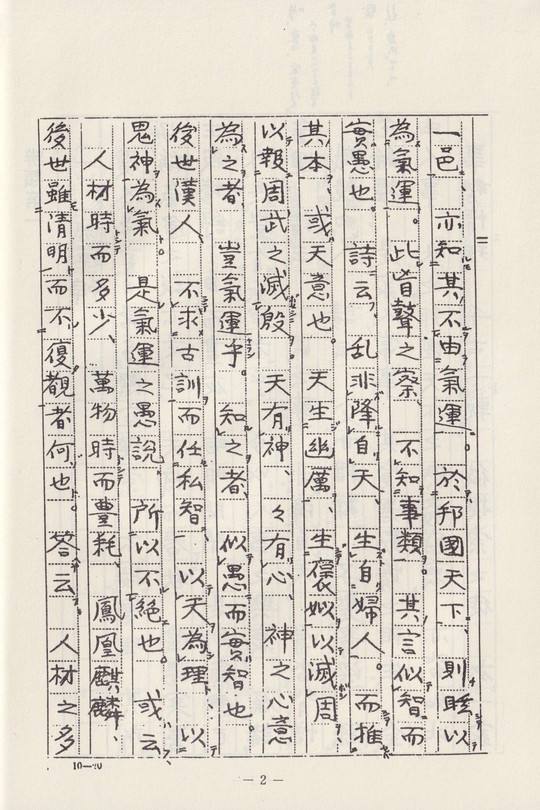 一邑、亦知其不由氣運。於邦國天下、則眩以
為氣運。此盲聾之察、不知事類。其言似智而
實愚也。詩云、乱非降自天、生自婦人。而推
其本、或天意也。天生幽厲、生襃姒以滅周、
以報周武之滅殷。天有神、々有心、神之心意
為之者、豈氣運乎。知之者、似愚而實智也。
後世漢人、不求古訓而任私智、以天為理、以
鬼神為氣。是氣運之愚説、所以不絶也。或云、
人材時而多少、萬物時而豊耗、鳳凰麒麟、
後世雖清明而不復覩者何也。答云、人材之多
10—20
— 2 —